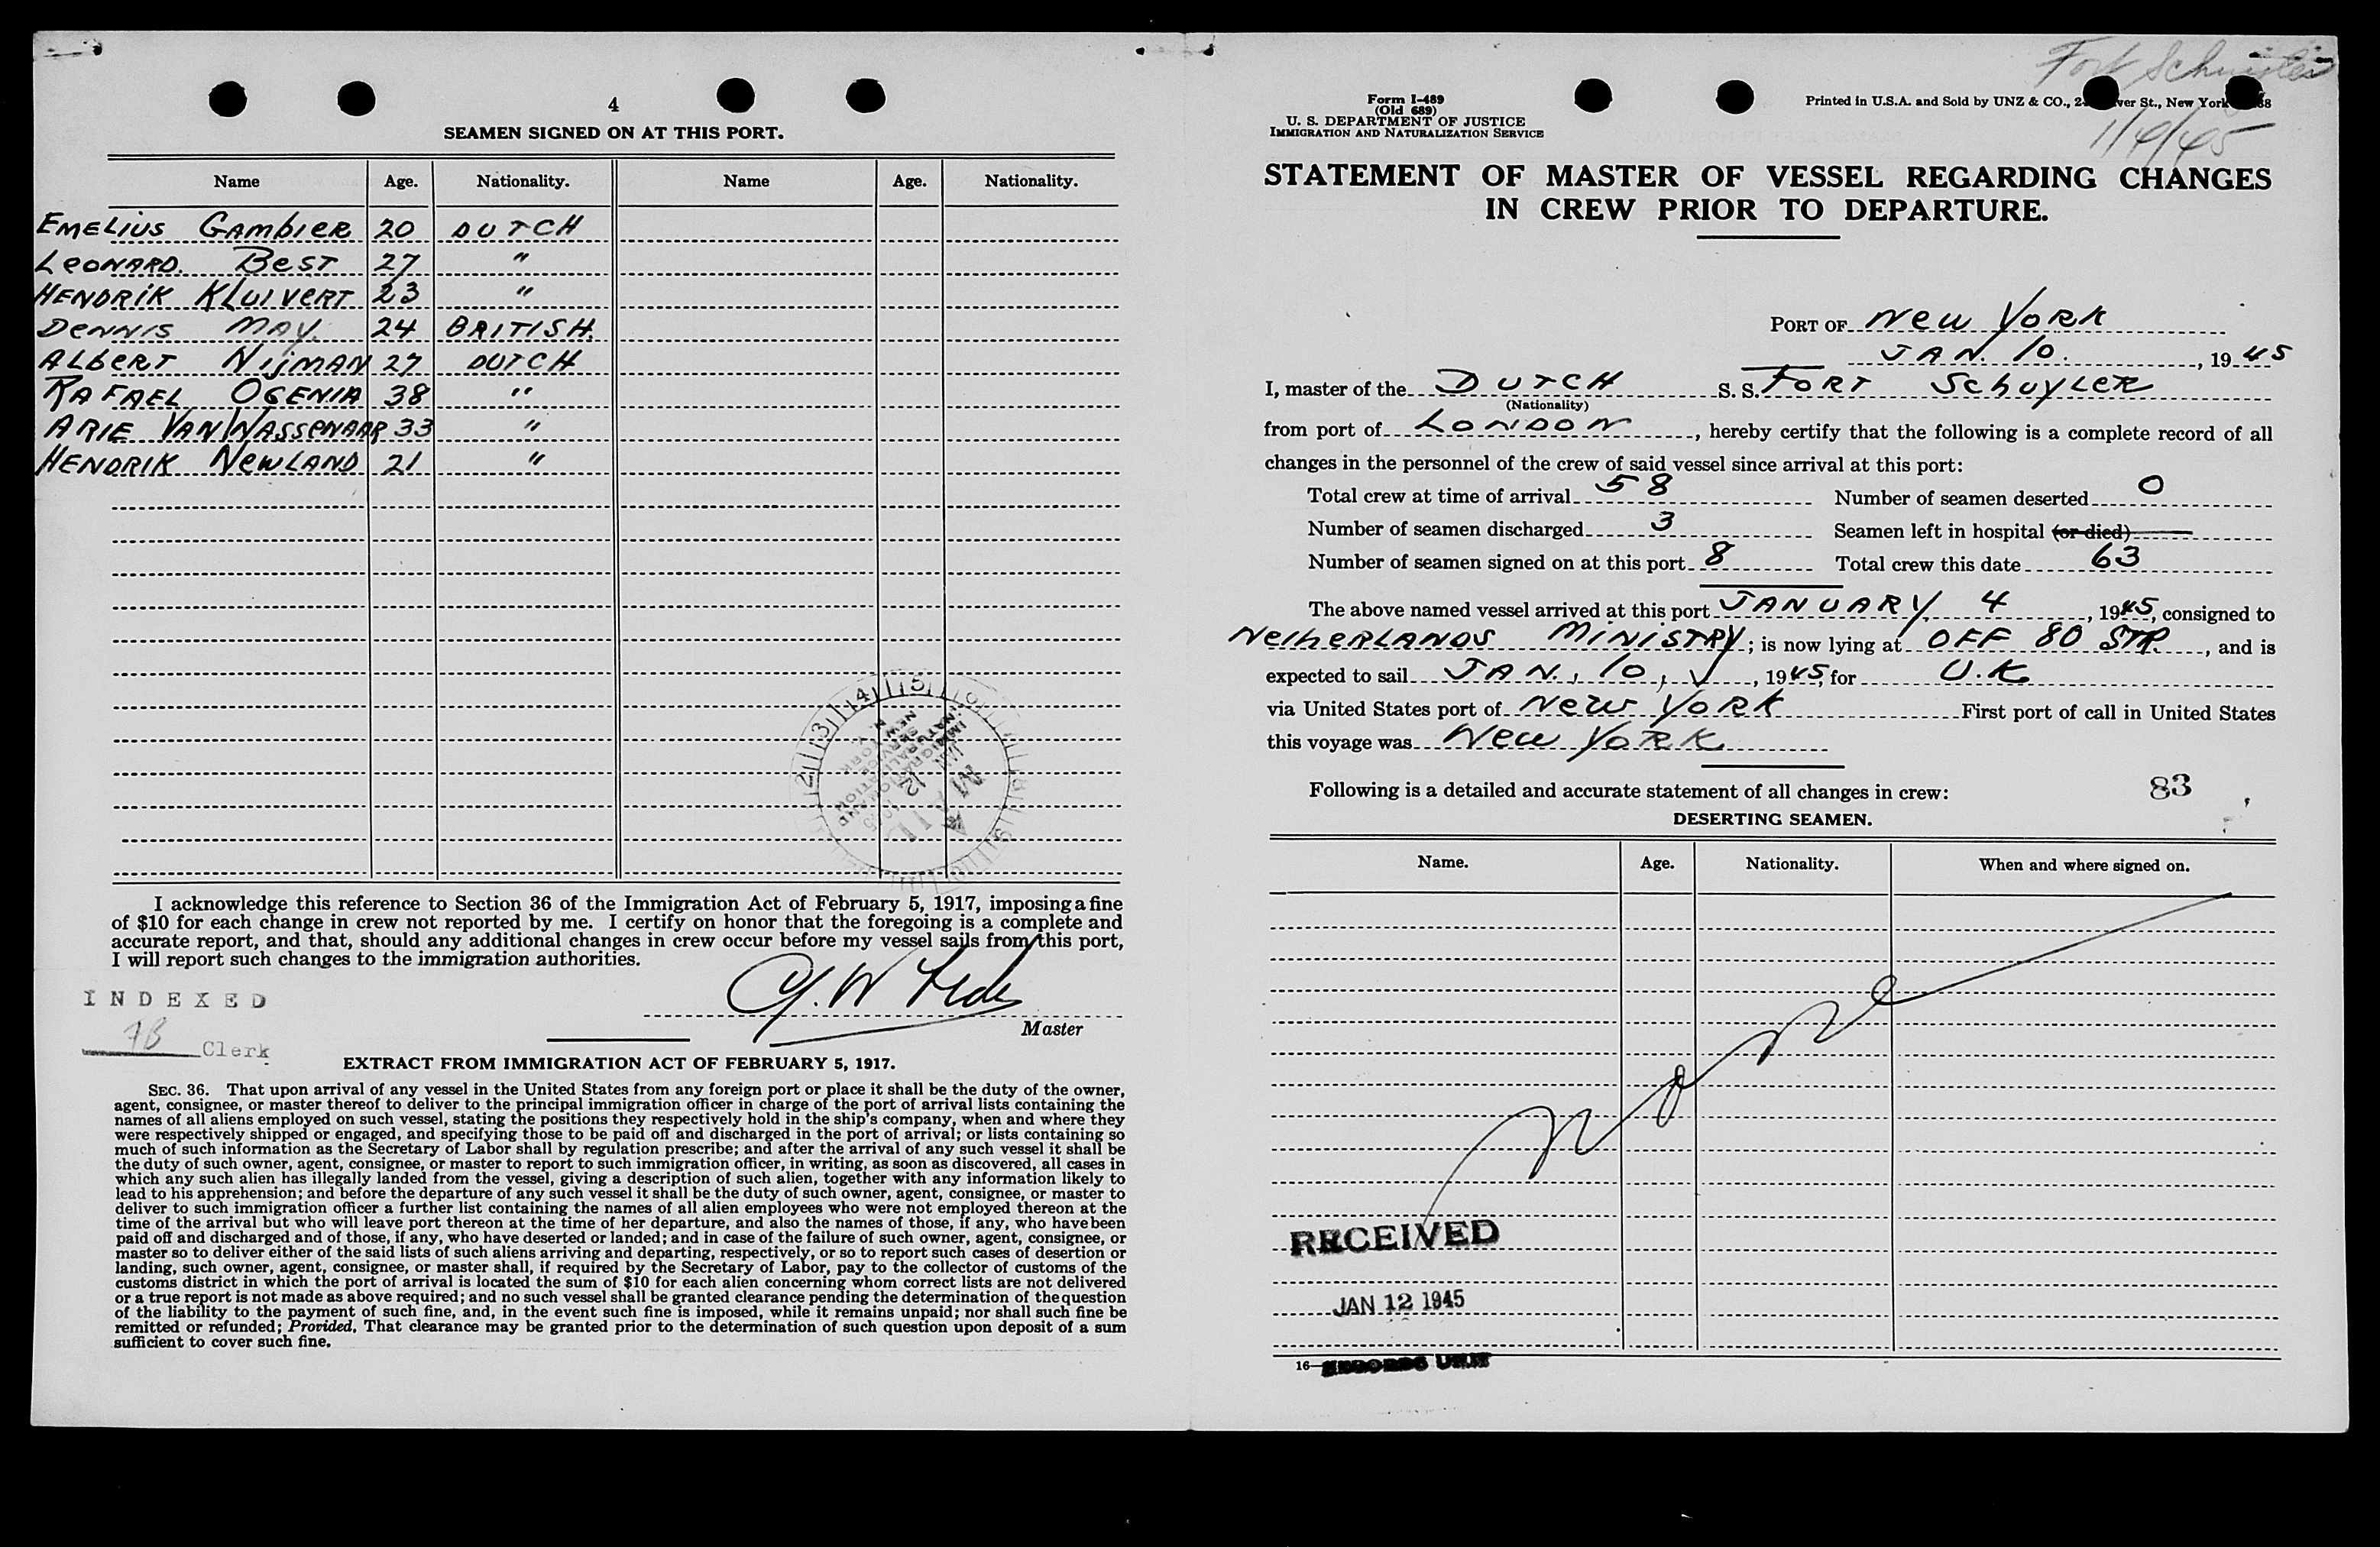 4
SEAMEN SIGNED ON AT THIS PORT.
Name Age. Nationality. Name Age. Nationality.
EMELIUS GAMBIER 20 DUTCH
LEONARD. BEST 27 "
HENDRIK KLUIVERT 23 "
DENNIS MAY. 24 BRITISH.
ALBERT NIJMAN 27 DUTCH
RAFAEL OGENIA 38 "
ARIE VAN WASSENAAR 33 "
HENDRIK NEWLAND 21 "
I acknowledge this reference to Section 36 of the Immigration Act of February 5, 1917, imposing a fine
of $10 for each change in crew not reported by me. I certify on honor that the foregoing is a complete and
accurate report, and that, should any additional changes in crew occur before my vessel sails from this port,
I will report such changes to the immigration authorities.
INDEXED
Master
Clerk
EXTRACT FROM IMMIGRATION ACT OF FEBRUARY 5, 1917.
SEC. 36. That upon arrival of any vessel in the United States from any foreign port or place it shall be the duty of the owner,
agent, consignee, or master thereof to deliver to the principal immigration officer in charge of the port of arrival lists containing the
names of all aliens employed on such vessel, stating the positions they respectively hold in the ship's company, when and where they
were respectively shipped or engaged, and specifying those to be paid off and discharged in the port of arrival; or lists containing so
much of such information as the Secretary of Labor shall by regulation prescribe; and after the arrival of any such vessel it shall be
the duty of such owner, agent, consignee, or master to report to such immigration officer, in writing, as soon as discovered, all cases in
which any such alien has illegally landed from the vessel, giving a description of such alien, together with any information likely to
lead to his apprehension; and before the departure of any such vessel it shall be the duty of such owner, agent, consignee, or master to
deliver to such immigration officer a further list containing the names of all alien employees who were not employed thereon at the
time of the arrival but who will leave port thereon at the time of her departure, and also the names of those, if any, who have been
paid off and discharged and of those, if any, who have deserted or landed; and in case of the failure of such owner, agent, consignee, or
master so to deliver either of the said lists of such aliens arriving and departing, respectively, or so to report such cases of desertion or
landing, such owner, agent, consignee, or master shall, if required by the Secretary of Labor, pay to the collector of customs of the
customs district in which the port of arrival is located the sum of $10 for each alien concerning whom correct lists are not delivered
or a true report is not made as above required; and no such vessel shall be granted clearance pending the determination of the question
of the liability to the payment of such fine, and, in the event such fine is imposed, while it remains unpaid; nor shall such fine be
remitted or refunded; Provided, That clearance may be granted prior to the determination of such question upon deposit of a sum
sufficient to cover such fine.
Fort Schuyler
1/4/45
Form I-489
(Old 689)
U. S. DEPARTMENT OF JUSTICE
IMMIGRATION AND NATURALIZATION SERVICE
Printed in U.S.A. and Sold by UNZ & CO., St., New York
STATEMENT OF MASTER OF VESSEL REGARDING CHANGES
IN CREW PRIOR TO DEPARTURE.
PORT OF New YORK
JAN. 10., 1945
I, master of the DUTCH S. S. FORT SCHUYLER
(Nationality)
from port of LONDON, hereby certify that the following is a complete record of all
changes in the personnel of the crew of said vessel since arrival at this port:
Total crew at time of arrival 58 Number of seamen deserted 0
Number of seamen discharged 3 Seamen left in hospital (or died)
Number of seamen signed on at this port 8 Total crew this date 63
The above named vessel arrived at this port JANUARY 4, 1945, consigned to
NETHERLANDS MINISTRY; is now lying at OFF 80 STR., and is
expected to sail JAN., 10, 1945, for U.K.
via United States port of New YORK First port of call in United States
this voyage was New YORK
Following is a detailed and accurate statement of all changes in crew: 83
DESERTING SEAMEN.
Name. Age. Nationality. When and where signed on.
None
RECEIVED
JAN 12 1945
16— RECORDS UNIT